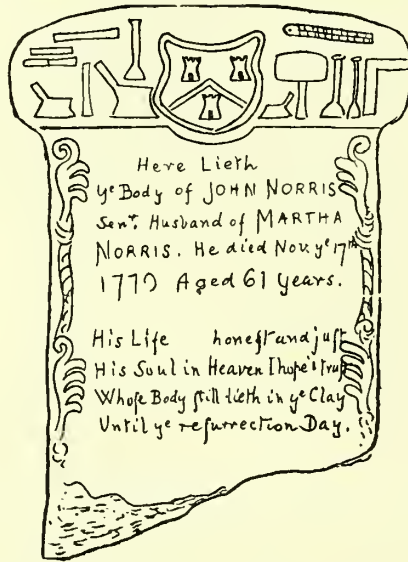 Here Lieth
yᵉ Body of JOHN NORRIS
Senʳ. Husband of MARTHA
NORRIS. He died Nov. yᵉ 17ᵗʰ
1770 Aged 61 Years.
His Life honeſt and juſt
His Soul in Heaven I hope & truſt
Whoſe Body ſtill lieth in yᵉ Clay
Until yᵉ reſurrection Day.